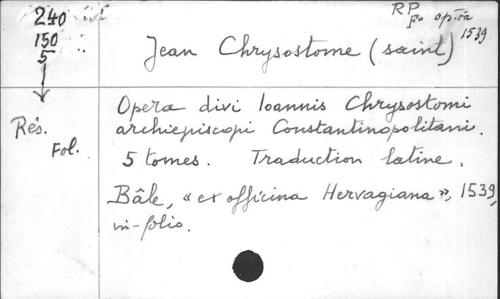 240
150
5
Rés.
Fol.
RP
1539
Jean Chrysostome (saint)
Opera divi Ioannis Chrysostomi
archiepiscopi Constantinopolitani.
5 tomes. Traduction latine.
Bâle, « ex officina Hervagiana », 1539,
in-folio.